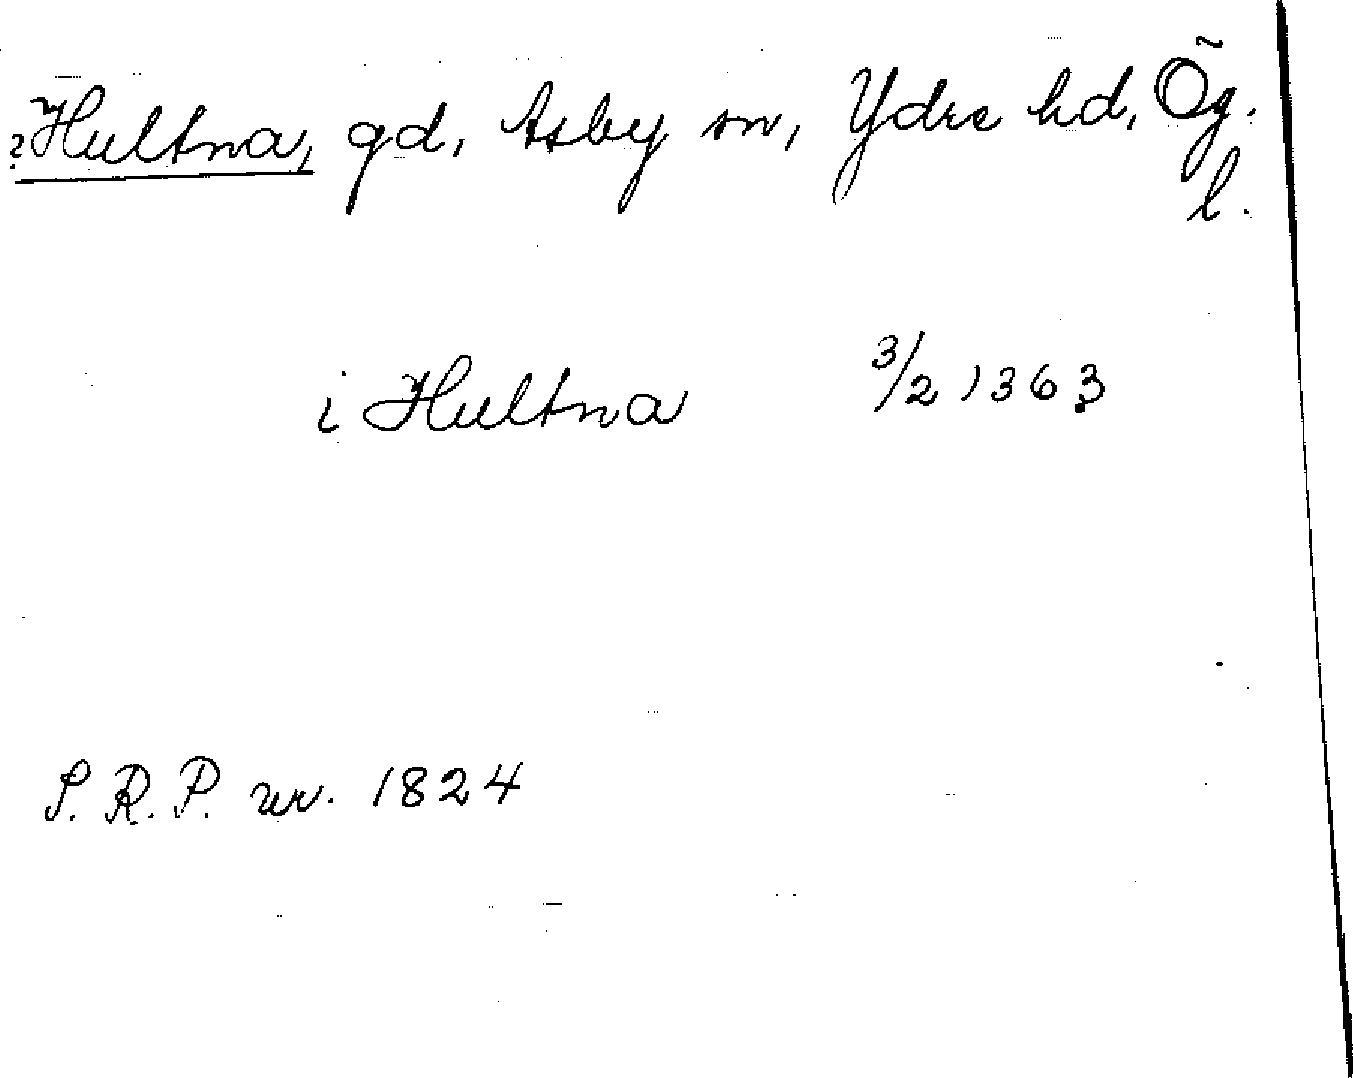 ?Hultna, gd, Asby sn, Ydre hd, Ög.
l.
i Hultna 3/2 1363
S.R.P. nr. 1824